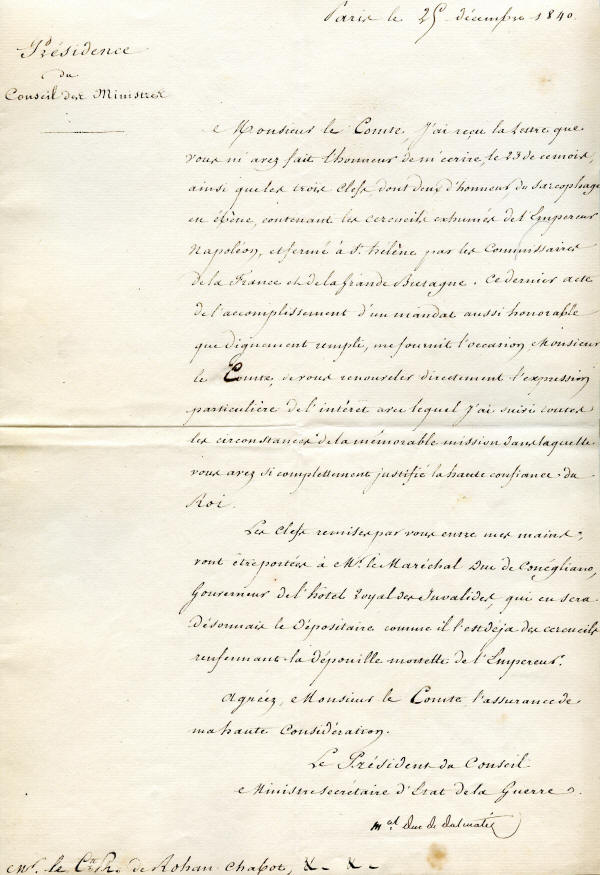 Paris le 25 décembre 1840.
Présidence
du
Conseil des Ministres
Monsieur le Comte, J'ai reçu la Lettre que
vous m'avez fait l'honneur de m'écrire, le 23 de ce mois,
ainsi que les trois clefs, dont deux d'honneur du sarcophage
en ébène, contenant les cercueils exhumés de l'Empereur
Napoléon, et fermé à Ste. hélène par les Commissaires
de la France et de la Grande Bretagne. Ce dernier acte
de l'accomplissement d'un mandat aussi honorable
que dignement rempli, me fournit l'occasion, Monsieur
le Comte, de vous renouveler directement l'expression
particulière de l'intérêt avec lequel J'ai suivi toutes
les circonstances de la mémorable mission dans laquelle
vous avez si complettement justifié la haute confiance du
Roi.
Les clefs remises par vous entre mes mains,
vont être portées à Mr. le Maréchal Duc de Conégliano,
Gouverneur de l'hôtel Royal des Invalides, qui en sera
Désormais le Dépositaire comme il l'est déja des cercueils
renfermant la dépouille mortelle de l'Empereur.
Agréez, Monsieur le Comte l'assurance de
ma haute Considération.
Le Président du Conseil
Ministre Secrétaire d'Etat de la Guerre.
Mal duc de dalmatie
Mr. le Cte Ph. de Rohan-Chabot, &. &.